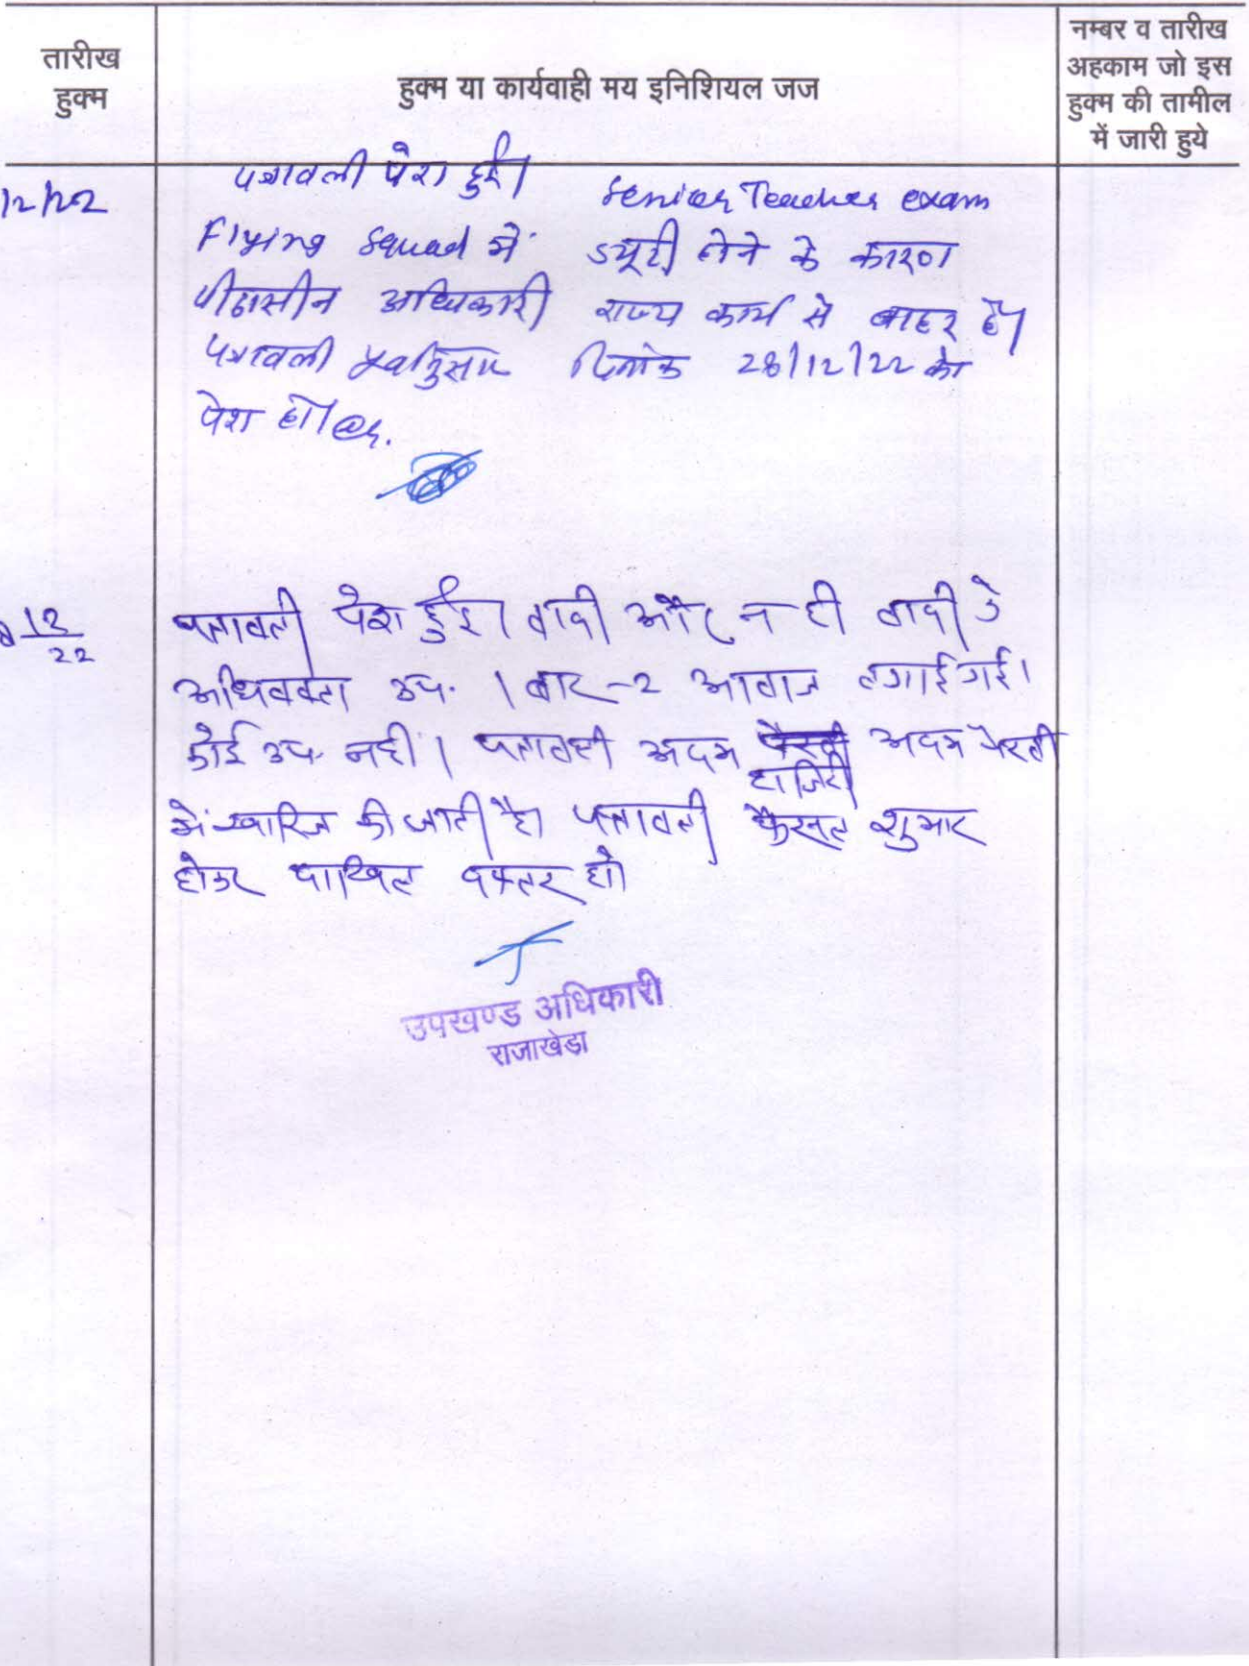 तारीख
हुक्म
हुक्म या कार्यवाही मय इनिशियल जज
नम्बर व तारीख
अहकाम जो इस
हुक्म की तामील
में जारी हुये
12/22
पत्रावली पेश हुई। Senior Teacher exam
Flying Squad में ड्यूटी होने के कारण
पीठासीन अधिकारी राज्य कार्य से बाहर है।
पत्रावली पूर्वानुसार दिनांक 28/12/22 को
पेश हो।
12
22
पत्रावली पेश हुई। वादी और न ही वादी के
अधिवक्ता उप. । बार-2 आवाज लगाई गई।
कोई उप. नही। पत्रावली अदम पैरवी अदम पैरवी
हाजिरी
में खारिज की जाती है। पत्रावली फैसल शुमार
होकर दाखिल दफ्तर हो।
उपखण्ड अधिकारी
राजाखेड़ा